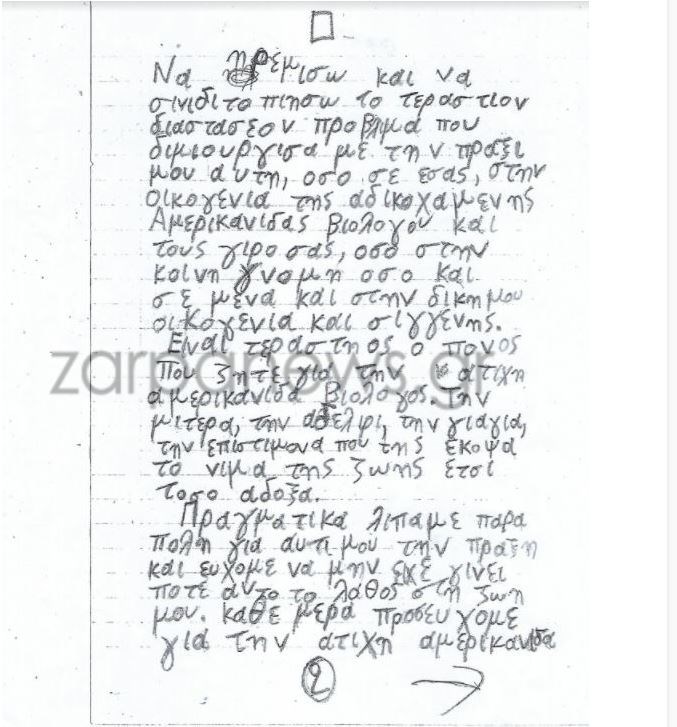 Να ηρέμισω και να
σινιδιτοπιησω το τεραστιον
διαστασεον προβλιμα που
διμιουργισα με την πραξι
μου αυτη, οσο σε εσας, στην
οικογενια της αδικοχαμενης
Αμερικανιδας βιολογου και
τους γιρο σας, οσο στην
κοινη γνομη οσο και
σε μενα και στην δικη μου
οικογενια και σιγγενης.
Ειναι τεραστηος ο πονος
που ζητε για την ατιχη
αμερικανιδα βιολογος. Την
μιτερα, την αδελφι, την γιαγια,
την επιστιμονα που της εκοψα
το νιμα της ζωης ετσι
τοσο αδοξα.
Πραγματικα λιπαμε παρα
πολη για αυτι μου την πραξη
και ευχομε να μην ειχε γινει
ποτε αυτο το λαθος στη ζωη
μου. καθε μερα προσευχομε
για την ατιχη αμερικανιδα
2
zarpanews.gr